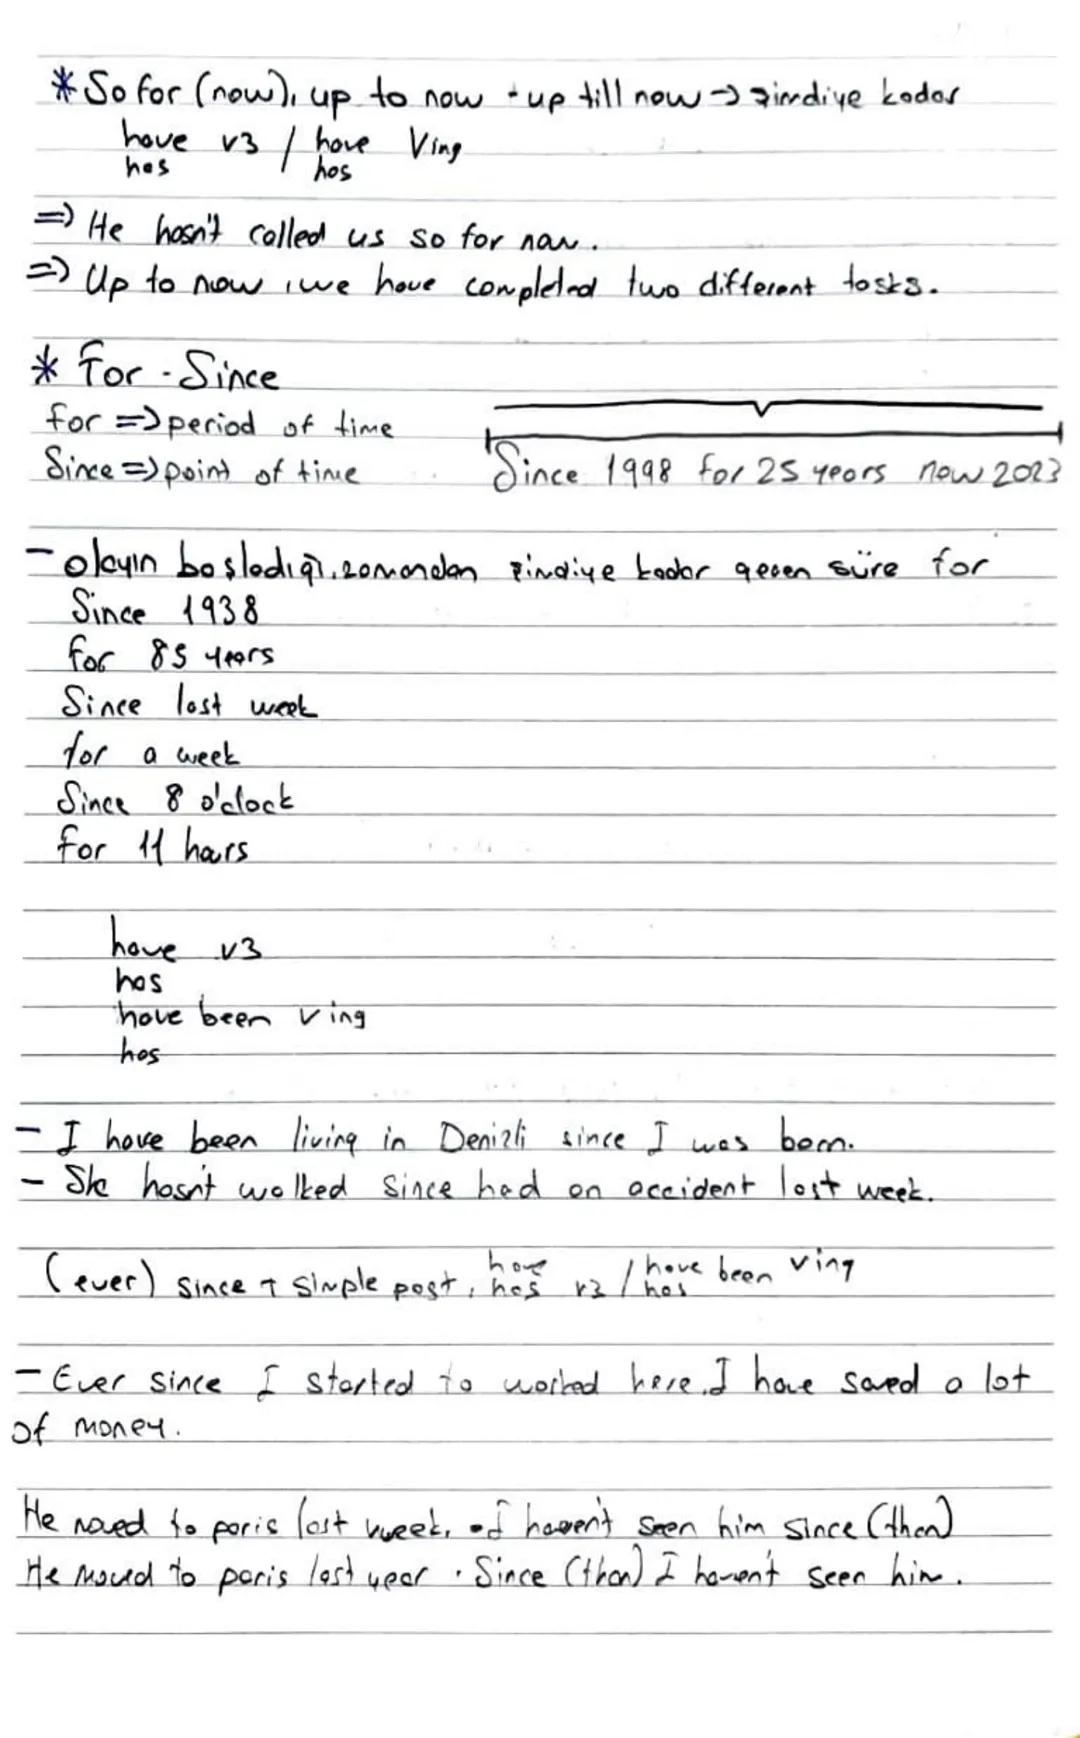 * So far (now), up to now - up till now → şimdiye kadar
have v3 / have Ving
has has
⇒ He hasn't called us so far now.
⇒ Up to now, we have completed two different tasks.
* For - Since
for ⇒ period of time
Since ⇒ point of time
Since 1998 for 25 years now 2023
- olayın başladığı zamandan şimdiye kadar geçen süre for
Since 1938
for 85 years
Since last week
for a week
Since 8 o'clock
for 11 hours
have v3
has
have been ving
has
- I have been living in Denizli since I was born.
- She hasn't walked since had an accident last week.
(ever) since + simple past, have has v3 / have has been ving
- Ever since I started to worked here. I have saved a lot
of money.
He moved to paris last week. I haven't seen him since (then)
He moved to paris last year. Since (then) I haven't seen him.